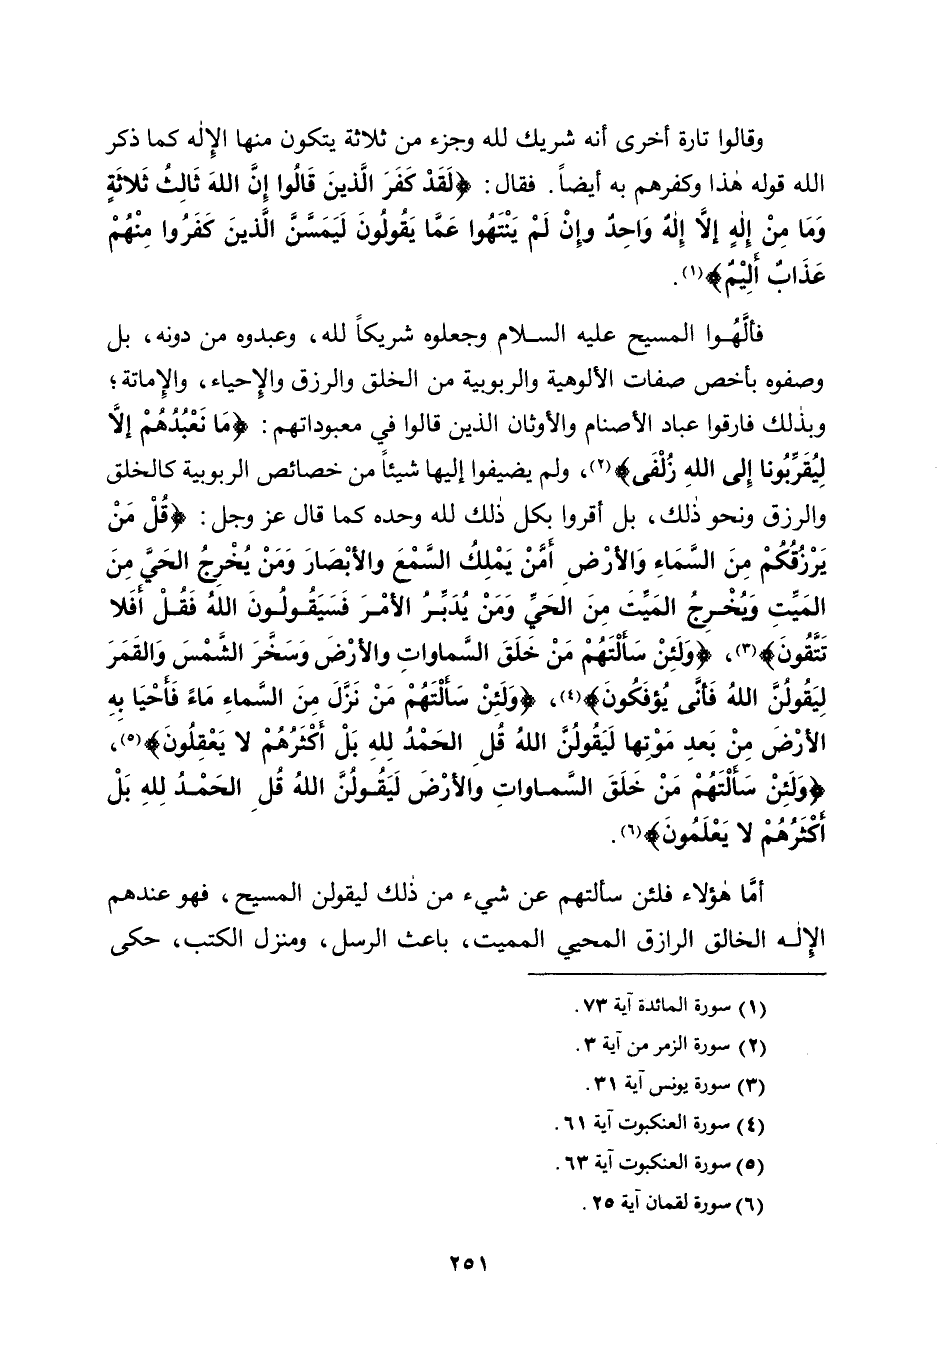 وقالوا تارة أخرى أنه شريك لله وجزء من ثلاثة يتكون منها الإلٰه كما ذكر
الله قوله هٰذا وكفرهم به أيضاً. فقال: ﴿لَقَدْ كَفَرَ الَّذينَ قَالُوا إِنَّ اللهَ ثَالِثُ ثَلاثَةٍ
وَمَا مِنْ إِلٰهٍ إلَّا إِلٰهٌ وَاحِدٌ وإِنْ لَمْ يَنْتَهُوا عَمَّا يَقُولُونَ لَيَمَسَّنَّ الَّذينَ كَفَرُوا مِنْهُمْ
عَذَابٌ أَلِيْمٌ﴾(١).
فألَّهُوا المسيح عليه السلام وجعلوه شريكاً لله، وعبدوه من دونه، بل
وصفوه بأخص صفات الألوهية والربوبية من الخلق والرزق والإحياء، والإماتة؛
وبذٰلك فارقوا عباد الأصنام والأوثان الذين قالوا في معبوداتهم: ﴿مَا نَعْبُدُهُمْ إلَّا
لِيُقَرِّبُونا إِلى اللهِ زُلْفَى﴾(٢)، ولم يضيفوا إليها شيئاً من خصائص الربوبية كالخلق
والرزق ونحو ذٰلك، بل أقروا بكل ذٰلك لله وحده كما قال عز وجل: ﴿قُلْ مَنْ
يَرْزُقُكُمْ مِنَ السَّمَاءِ وَالأرْضِ أَمَّنْ يَمْلِكُ السَّمْعَ والأَبْصَارَ وَمَنْ يُخْرِجُ الحَيَّ مِنَ
المَيِّتِ وَيُخْرِجُ المَيِّتَ مِنَ الحَيِّ وَمَنْ يُدَبِّرُ الأَمْرَ فَسَيَقُولُونَ اللهُ فَقُلْ أَفَلا
تَتَّقُونَ﴾(٣)، ﴿وَلَئِنْ سَأَلْتَهُمْ مَنْ خَلَقَ السَّماواتِ والأَرْضَ وَسَخَّرَ الشَّمْسَ وَالقَمَرَ
لَيَقُولُنَّ اللهُ فَأَنَّى يُؤفَكُونَ﴾(٤)، ﴿وَلَئِنْ سَأَلْتَهُمْ مَنْ نَزَّلَ مِنَ السَّماءِ مَاءً فَأَحْيَا بِهِ
الأرْضَ مِنْ بَعدِ مَوْتِها لَيَقُولُنَّ اللهُ قُلِ الحَمْدُ لِلهِ بَلْ أَكْثَرُهُمْ لا يَعْقِلُونَ﴾(٥)،
﴿وَلَئِنْ سَأَلْتَهُمْ مَنْ خَلَقَ السَّماواتِ والأَرْضَ لَيَقُولُنَّ اللهُ قُلِ الحَمْدُ لِلهِ بَلْ
أَكْثَرُهُمْ لا يَعْلَمُونَ﴾(٦).
أمَّا هٰؤلاء فلئن سألتهم عن شيء من ذٰلك ليقولن المسيح، فهو عندهم
الإلٰه الخالق الرازق المحيي المميت، باعث الرسل، ومنزل الكتب، حكى
(١) سورة المائدة آية ٧٣.
(٢) سورة الزمر من آية ٣.
(٣) سورة يونس آية ٣١.
(٤) سورة العنكبوت آية ٦١.
(٥) سورة العنكبوت آية ٦٣.
(٦) سورة لقمان آية ٢٥.
٢٥١